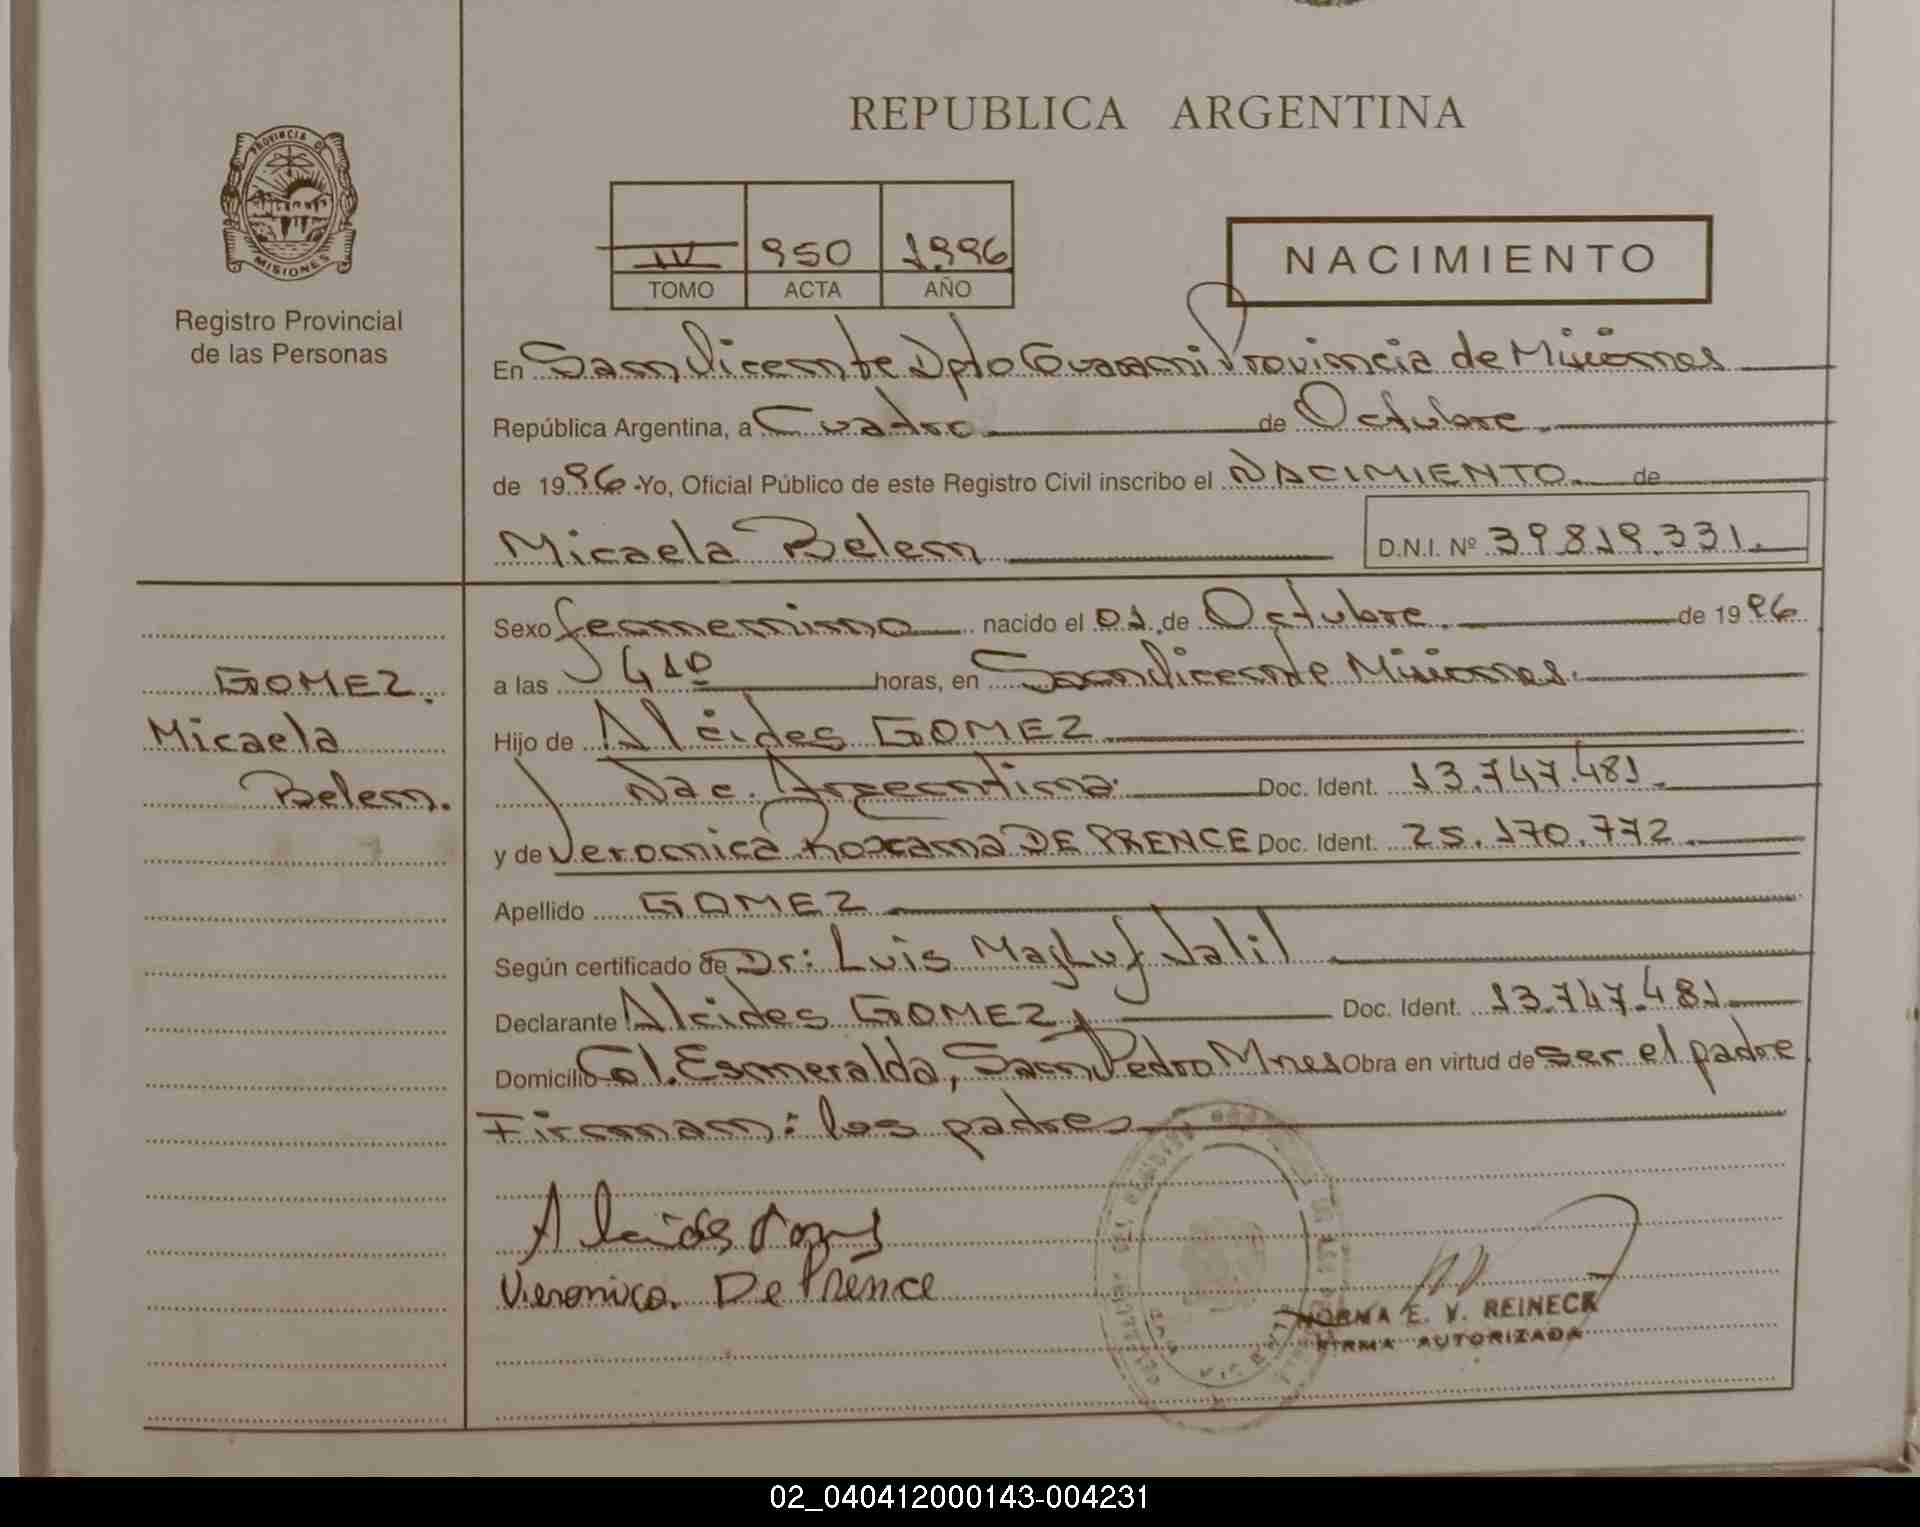 REPUBLICA ARGENTINA
PROVINCIA DE
MISIONES
Registro Provincial
de las Personas
IV 950 1996
TOMO ACTA AÑO
NACIMIENTO
En San Vicente Dpto Guarani Provincia de Misiones
República Argentina, a Cuatro de Octubre
de 1996 Yo, Oficial Público de este Registro Civil inscribo el NACIMIENTO de
Micaela Belem D.N.I. Nº 39.819.331.
GOMEZ.
Micaela
Belem.
Sexo femenino nacido el 01 de Octubre. de 1996
a las 4 10 horas, en San Vicente Misiones.
Hijo de Alcides GOMEZ
Nac. Argentina. Doc. Ident. 13.747.481
y de Veronica Roxana DE PRENCE Doc. Ident. 25.170.772.
Apellido GOMEZ
Según certificado de Dr: Luis Majluf Jalil
Declarante Alcides GOMEZ, Doc. Ident. 13.747.481
Domicilio Col. Esmeralda, San Pedro Mnes Obra en virtud de ser el padre
Firman: los padres
Alcides
Veronica De Prence
NORMA E. V. REINECK
FIRMA AUTORIZADA
02_040412000143-004231